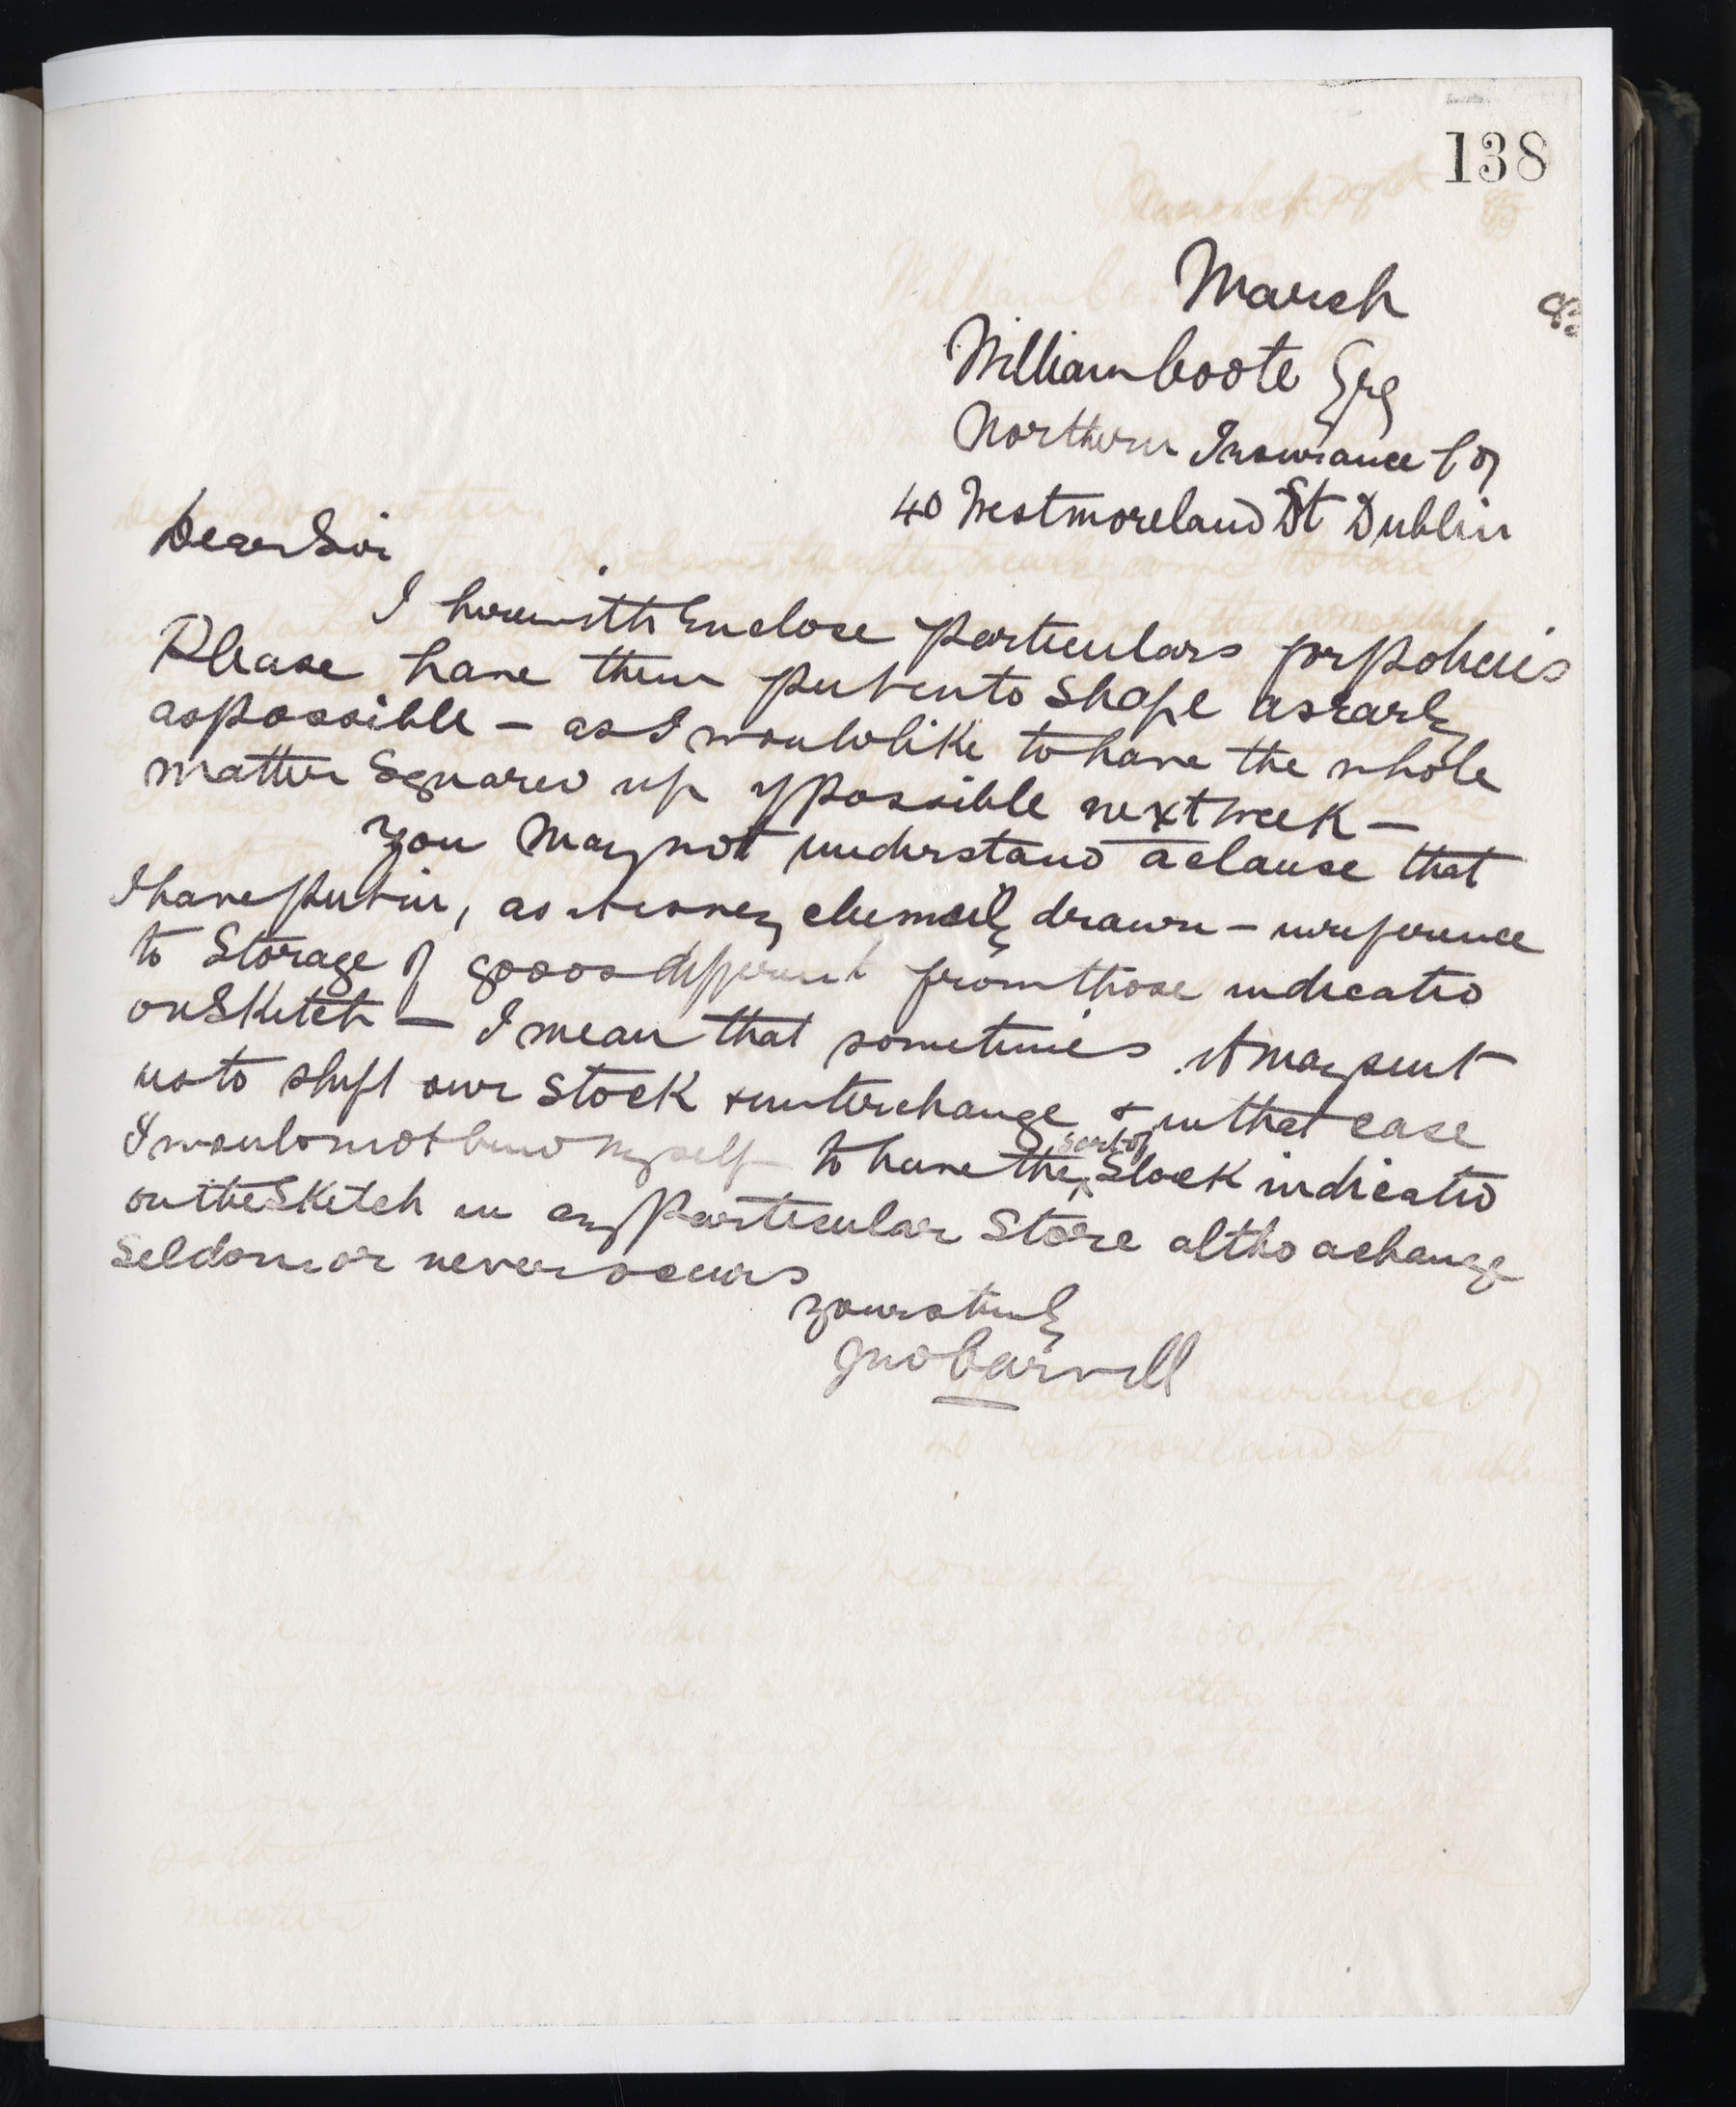 138
March
William Coote Esq
Northern Insurance Coy
40 Westmoreland St Dublin
Dear Sir
I herewith Enclose particulars for policies
Please have them put into Shape as early
as possible – as I would like to have the whole
matter Squared up if possible next week –
You May not understand a clause that
I have put in, as it is very clumsily drawn – in reference
to Storage of goods different from those indicated
on Sketch – I mean that sometimes it may suit
us to shift our Stock & interchange & in that case
I would not bind myself to have the sort of Stock indicated
on the Sketch in any Particular Store altho a change
Seldom or never occurs
Yours truly
Jno Carvill